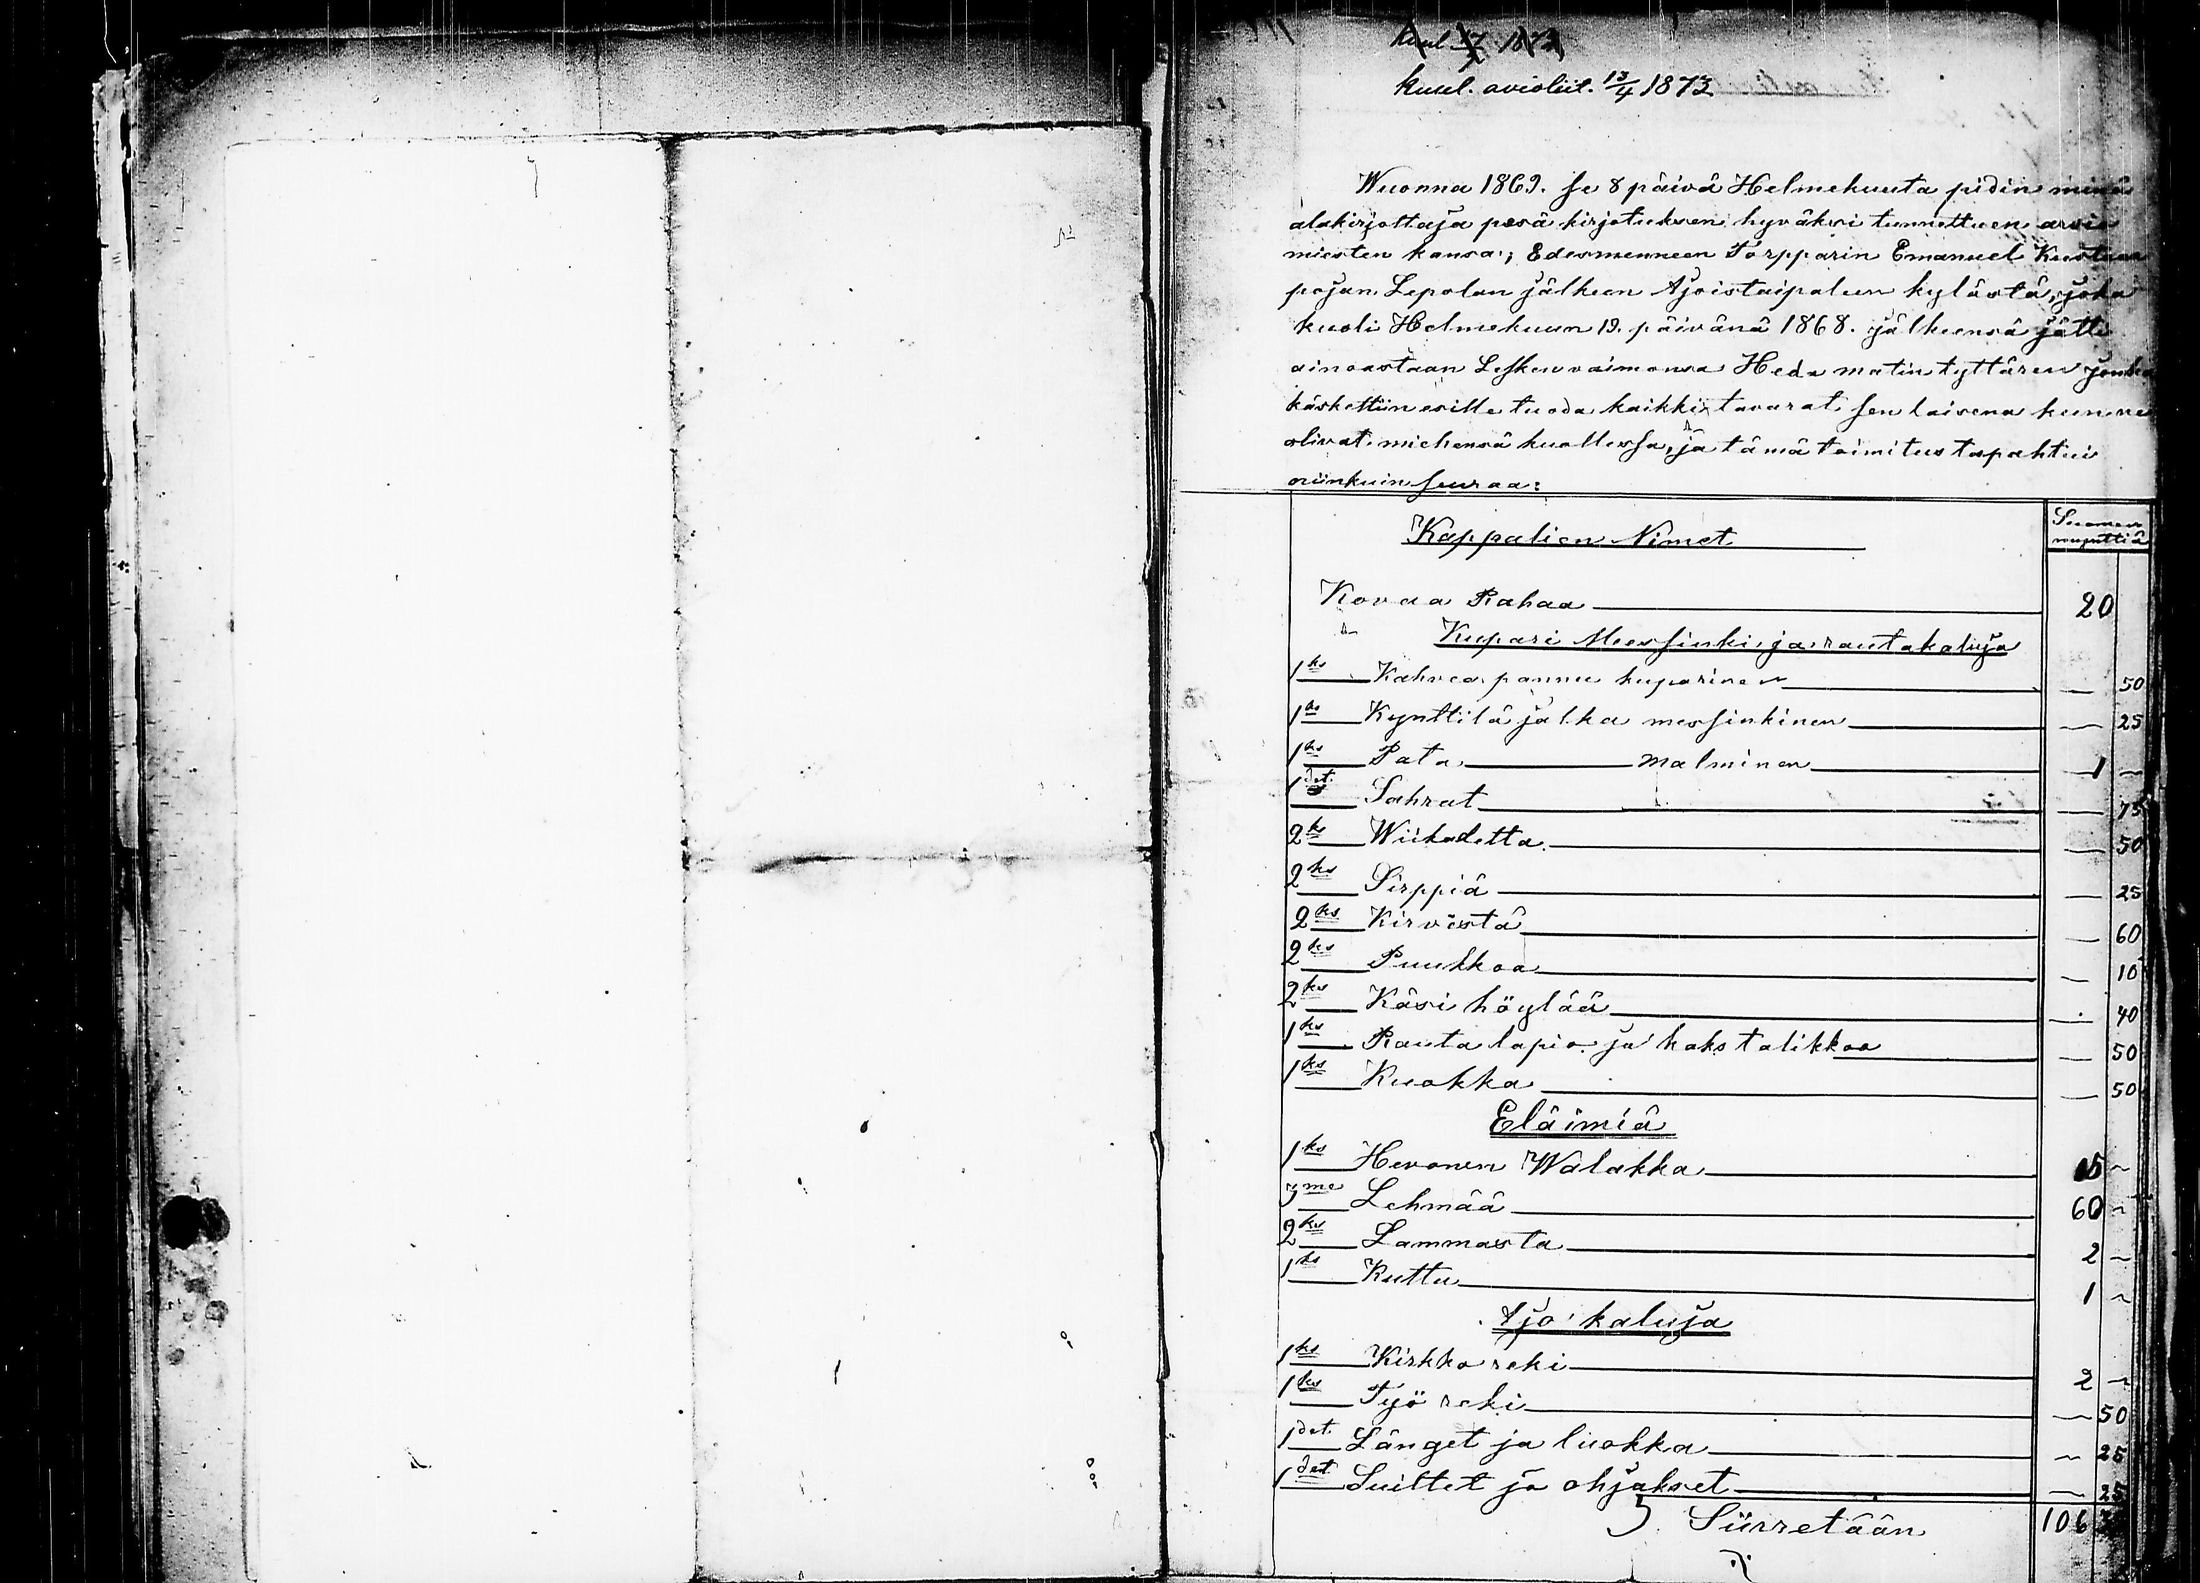 kuul. avioliit. 13/4 1873
Wuonna 1869. se 8 päivä Helmekuuta pidin minä
alakirjottaja pesä kirjotuksen hyväksi tunnettuen arvio
miesten kansa; Edesmenneen Torpparin Emanuel Kustaan
pojan Lepolan jälkeen Ajoistaipaleen kylästä, joka
kuoli Helmekuun 19. päivänä 1868. jälkeensä jätti
ainoastaan Lesken vaimonsa Heda matin tyttären jonka
käskettiin esille tuoda kaikki tavarat sen laisena kun ne
olivat miehensä kuollessa, ja tämä toimitus tapahtui
niinkuin seuraa:
Kappalien Nimet Suomen ruputtia
Kovaa Rahaa 20
Kupari Messinki ja rautakaluja
1 ks Kahvea pannu kuparinen — 50
1 ks Kynttilä jalka messinkinen — 25
1 ks Pata malminen 1 —
1 det. Sahrat — 75
2 ks Wiikadetta — 50
2 ks Sirppiä — 25
2 ks Kirvestä — 60
2 ks Puukkoa — 10
2 ks Käsi höylää — 40
1 ks Rauta lapio ja kaks talikkoa — 50
1 ks Kuokka — 50
Eläimiä
1 ks Hevonen Walakka 15 —
3 me Lehmää 60 —
2 ks Lammasta 2 —
1 ks Kuttu 1 —
Ajo kaluja
1 ks Kirkko reki 2 —
1 ks Työ reki — 50
1 det. Länget ja luokka — 25
1 det Suittet ja ohjakset — 25
Siirretään 106